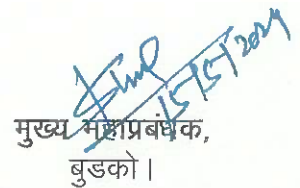 15/5/2024
मुख्य महाप्रबंधक,
बुडको।